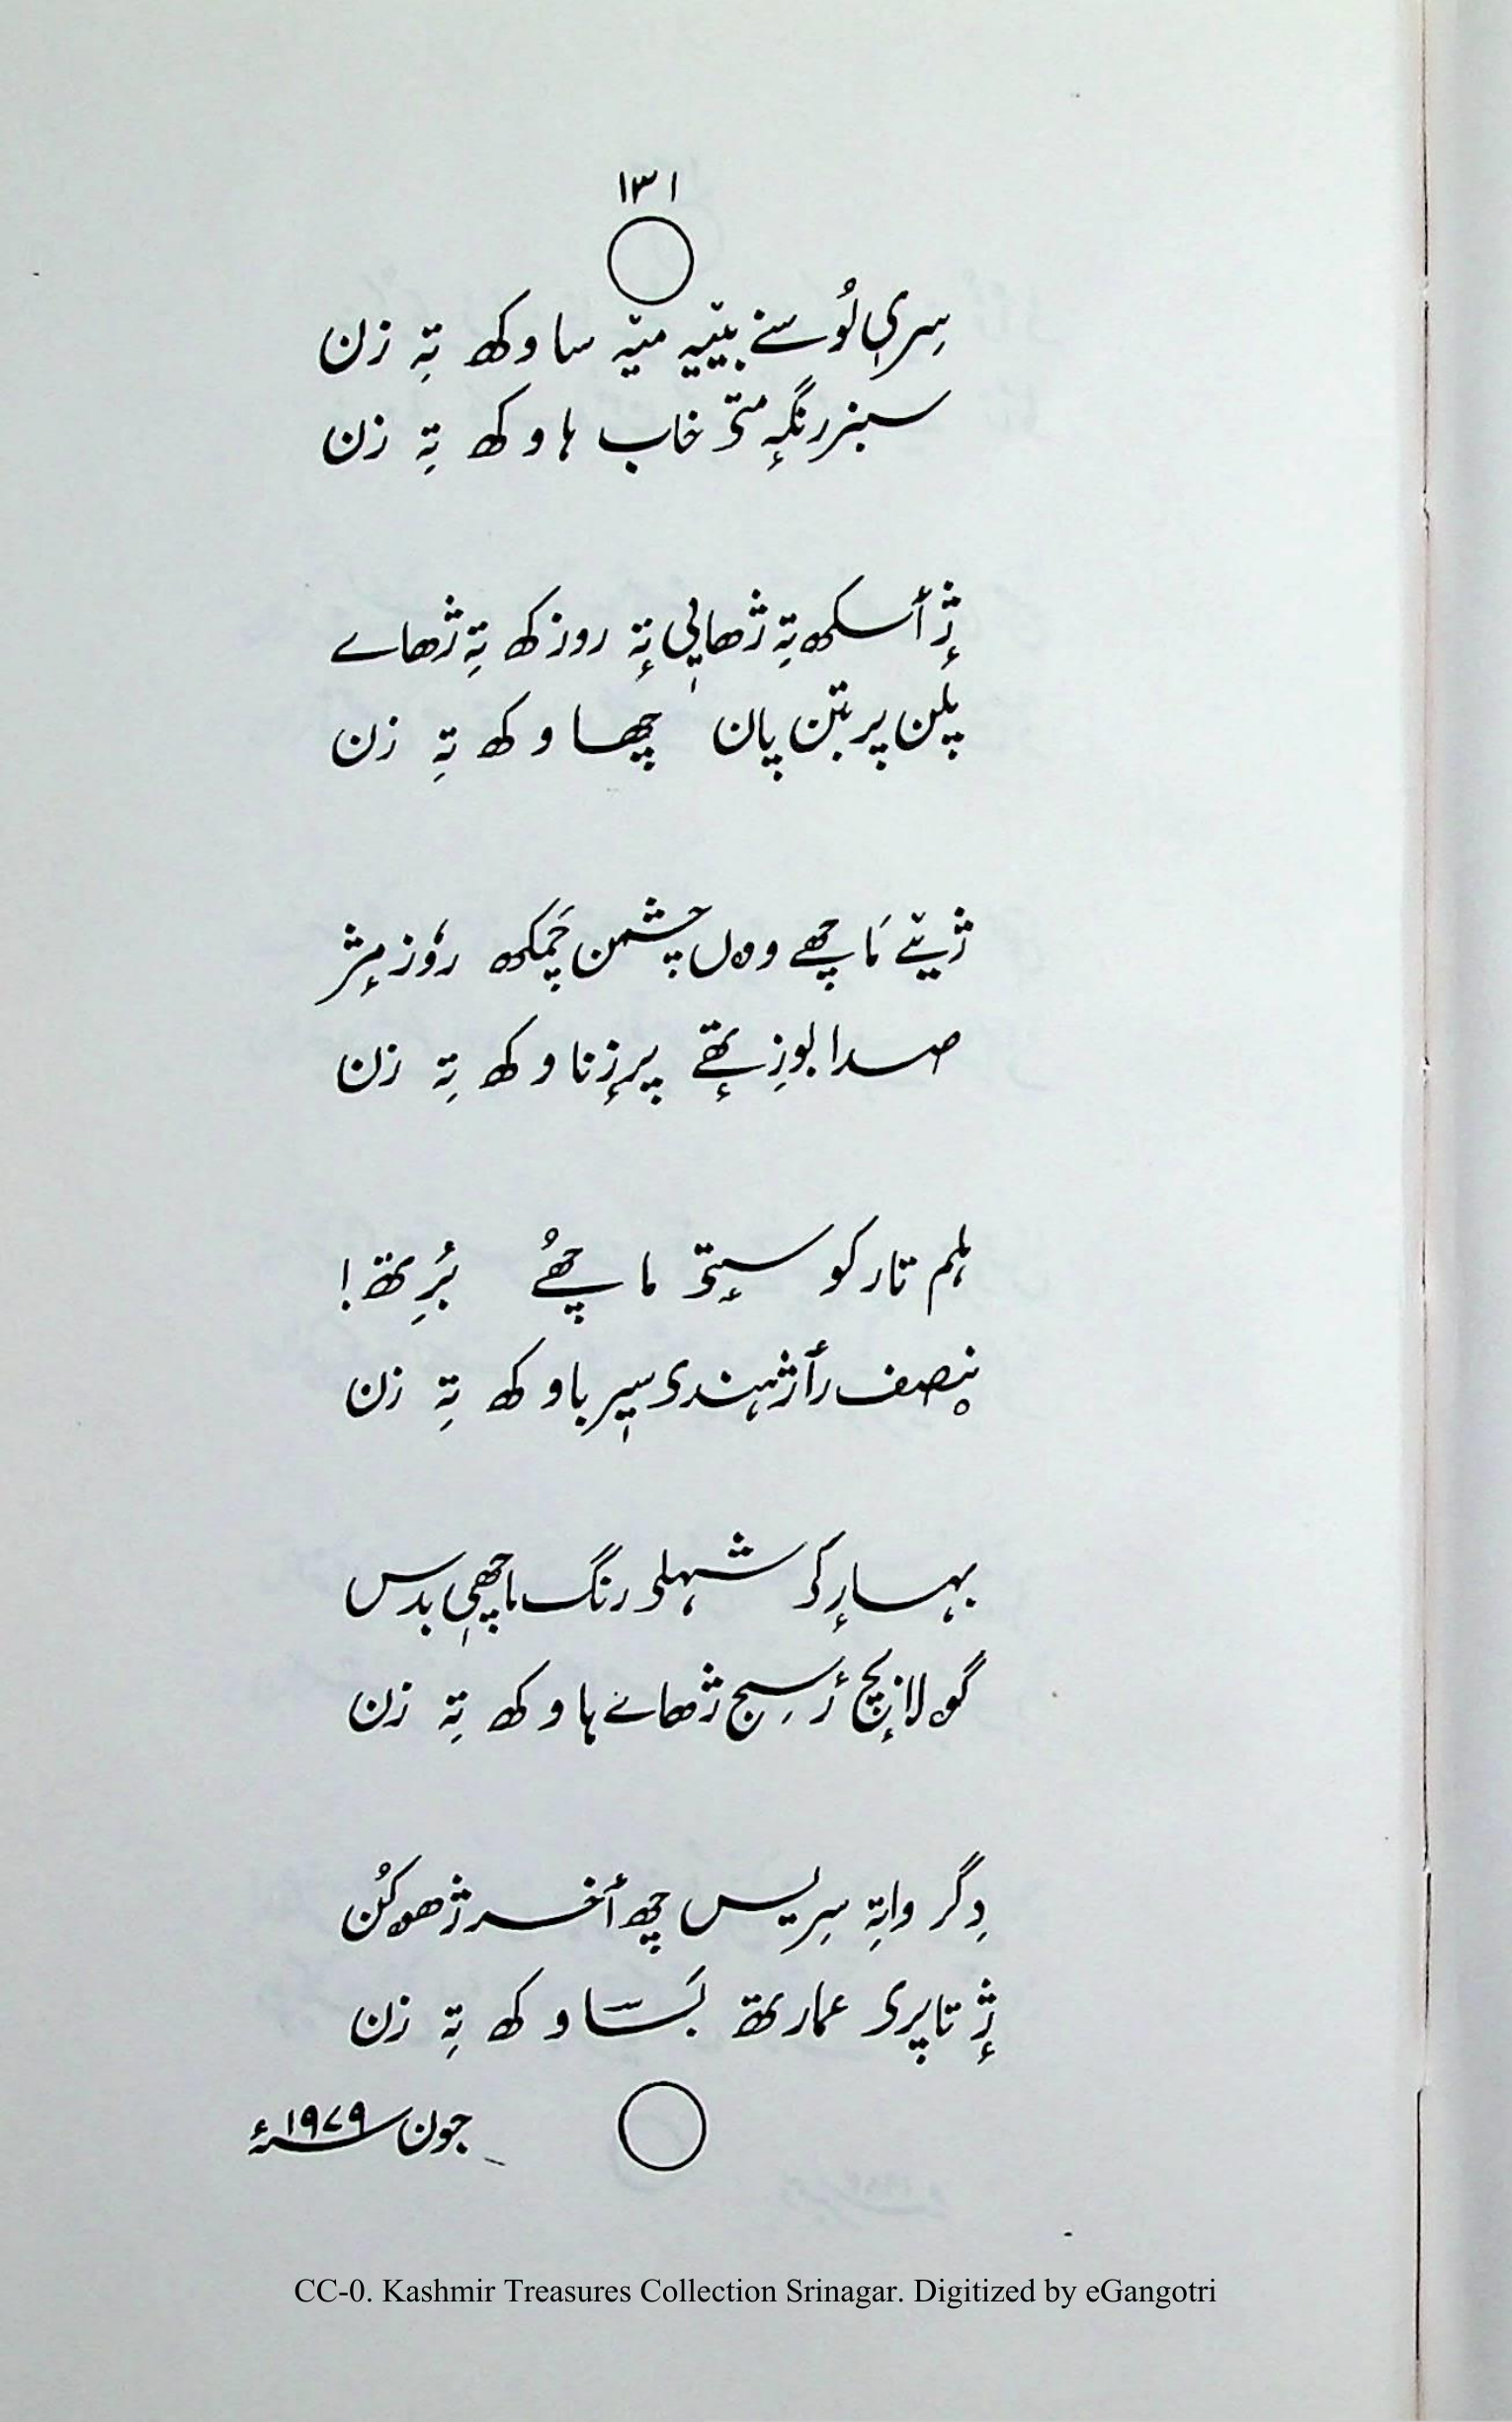 ۱۳۱
سِریٖ لُوسنے بییٚیہ میٚہ ساوکھ تہِ زن
سبز رنگہٕ متۍ خاب ہاوکھ تہِ زن
ژٕ أسکھ تہِ ژھایی تہٕ روزکھ تہِ ژھاے
پلن پربتن پان چھاوکھ تہِ زن
ژیٚے مَا چھے وول چشمن چَمکھ روٗز مٕژ
صدا بوزِتھٕے پرزٕناوکھ تہِ زن
ہلم تارکو سۭتۍ ما چھُے بُرِتھ!
نِصف رأژ ہندۍ سیٖر باوکھ تہِ زن
بہارٕکۍ شہلۍ رنگ ما چھیٖ بدس
گولابٕچ أسِج ژھاے ہاوکھ تہِ زن
دِگر واتہِ سِریس چھ أخر ژھوکُن
ژٕ تاپرۍ عمارتھ بَساوکھ تہِ زن
جون ۱۹۷۹ء
CC-0. Kashmir Treasures Collection Srinagar. Digitized by eGangotri